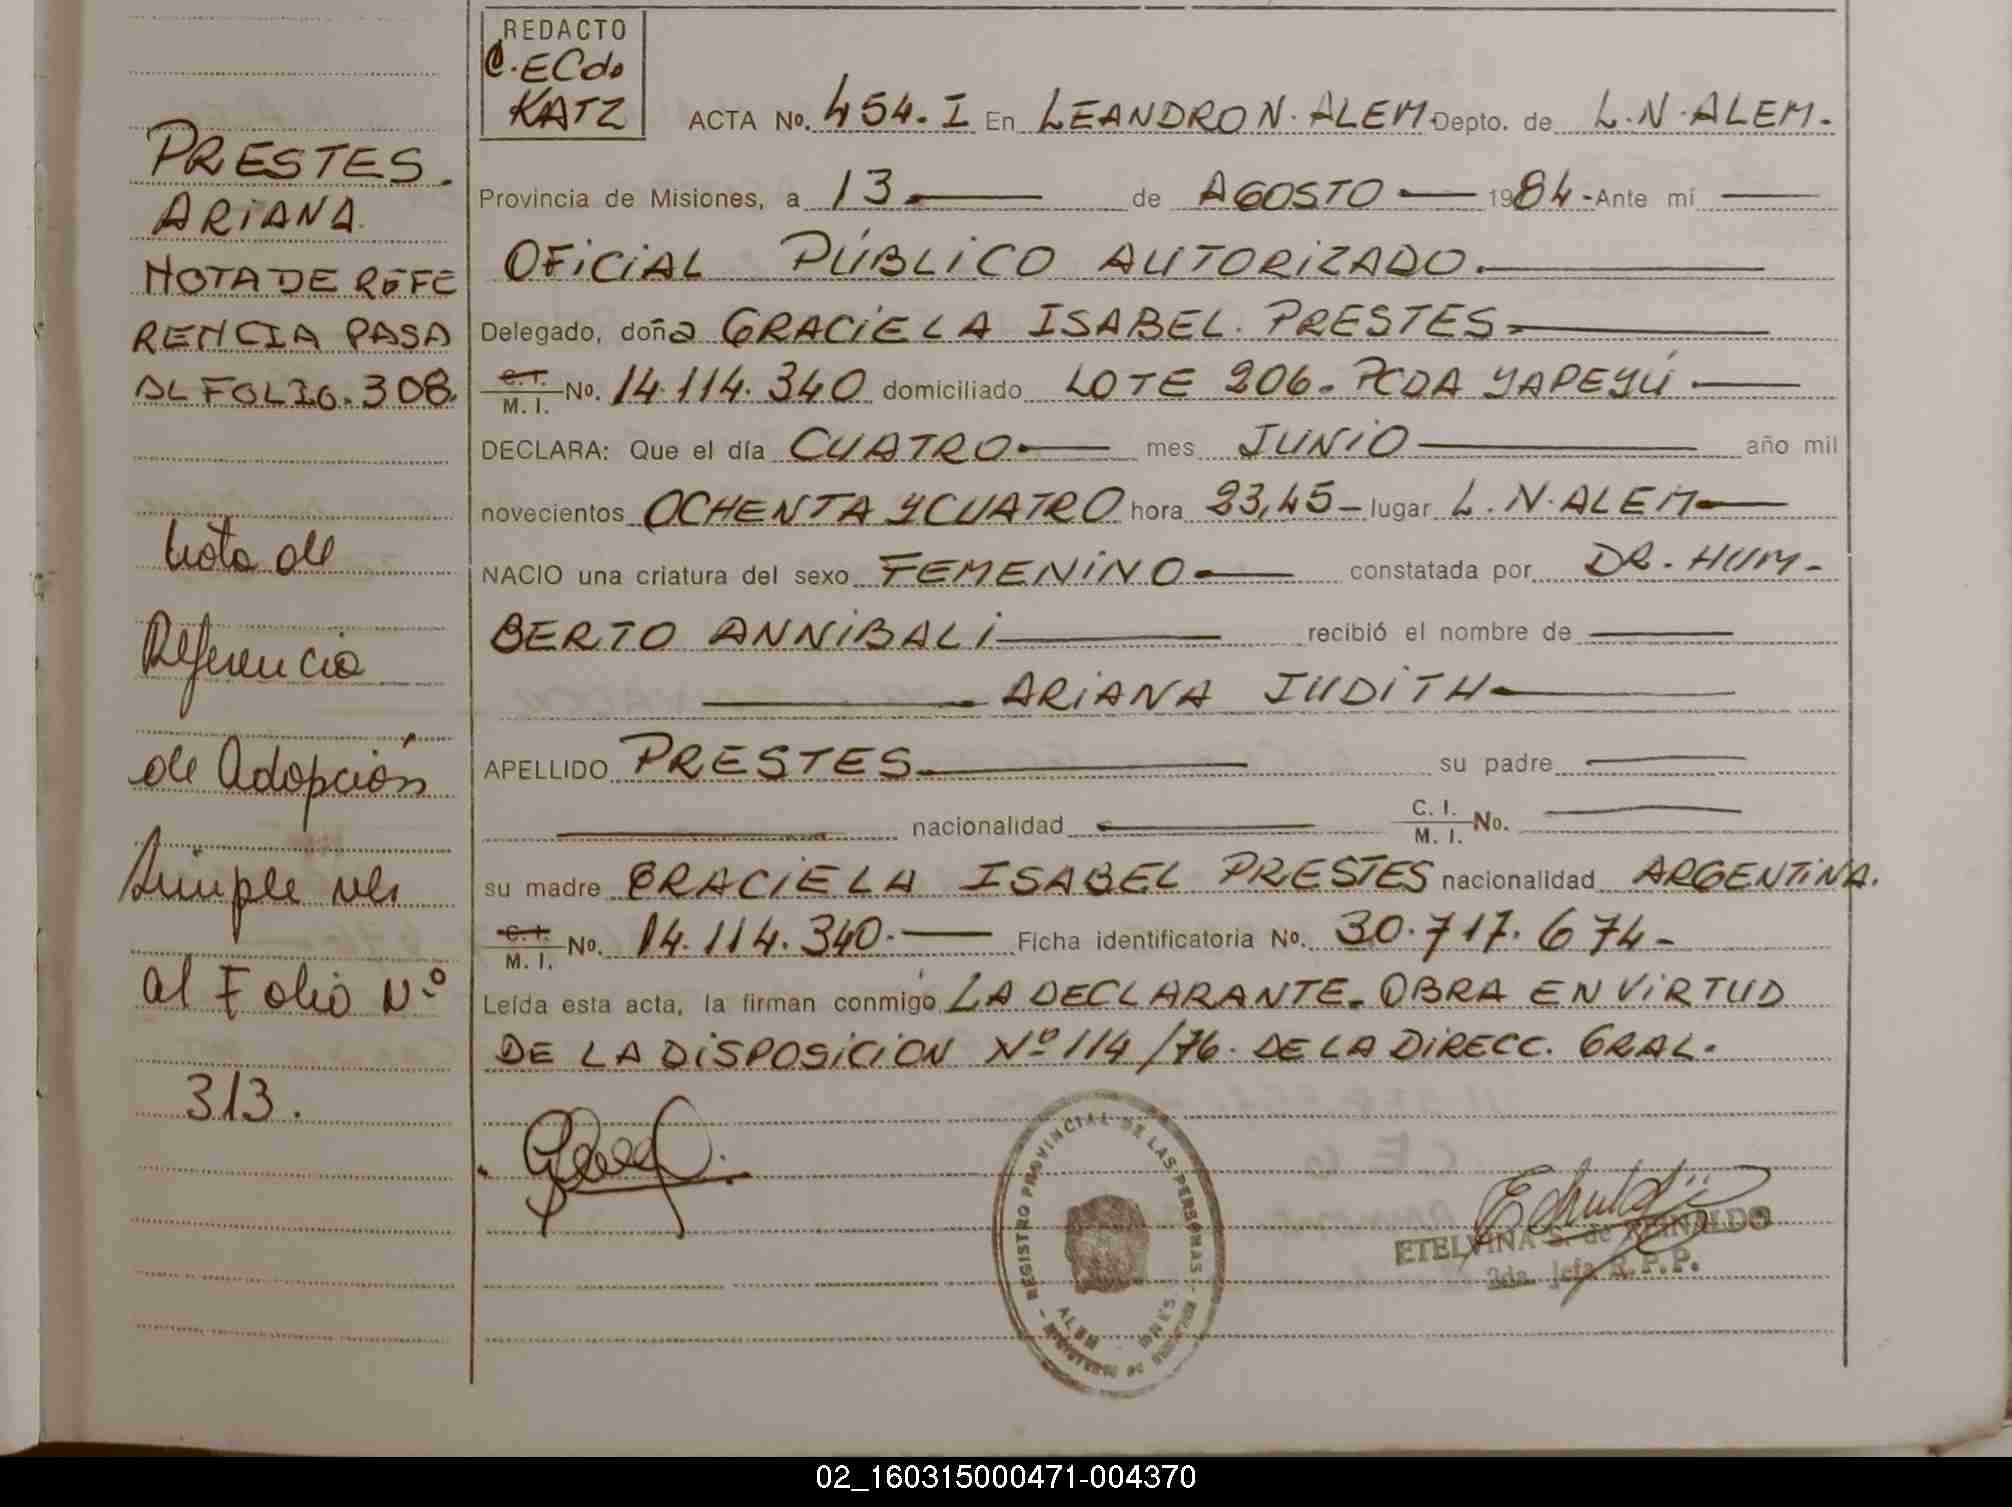 REDACTO
C. ECdo
KATZ
ACTA No. 454. I En LEANDRO N. ALEM Depto. de L. N. ALEM.
Provincia de Misiones, a 13 de AGOSTO 1984 - Ante mí
OFICIAL PÚBLICO AUTORIZADO.
Delegado, doña GRACIELA ISABEL. PRESTES
C. I. M. I. No. 14.114.340 domiciliado LOTE 206. PCDA YAPEYÚ
DECLARA: Que el día CUATRO mes JUNIO año mil
novecientos OCHENTA Y CUATRO hora 23,45 - lugar L. N. ALEM
NACIO una criatura del sexo FEMENINO constatada por DR. HUM-
BERTO ANNIBALI recibió el nombre de
ARIANA JUDITH
APELLIDO PRESTES su padre
nacionalidad C. I. M. I. No.
su madre GRACIELA ISABEL PRESTES nacionalidad ARGENTINA.
C. I. M. I. No. 14.114.340. Ficha identificatoria No. 30.717.674-
Leída esta acta, la firman conmigo LA DECLARANTE. OBRA EN VIRTUD
DE LA DISPOSICION Nº 114/76. DE LA DIRECC. GRAL.
PRESTES.
ARIANA.
NOTA DE REFE
RENCIA PASA
AL FOLIO. 308.
Nota de
Referencia
de Adopción
Simple ver
al Folio N.º
313.
REGISTRO PROVINCIAL DE LAS PERSONAS
ALEM - MNES
ETELVINA S. de REINALDO
2da. Jefa R.P.P.
02_160315000471-004370